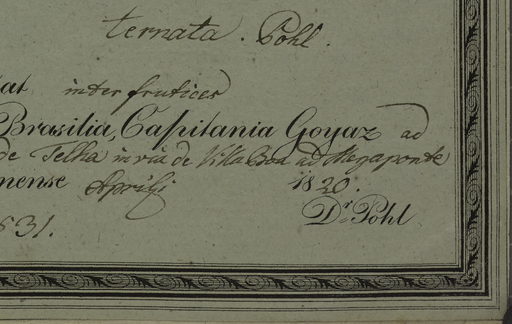 ternata. Pohl.
at inter frutices
Brasilia, Capitania Goyaz ad
de Telha in via de Villa Boa ad Megaponte
mense Aprili 1820.
Dr. Pohl
531.